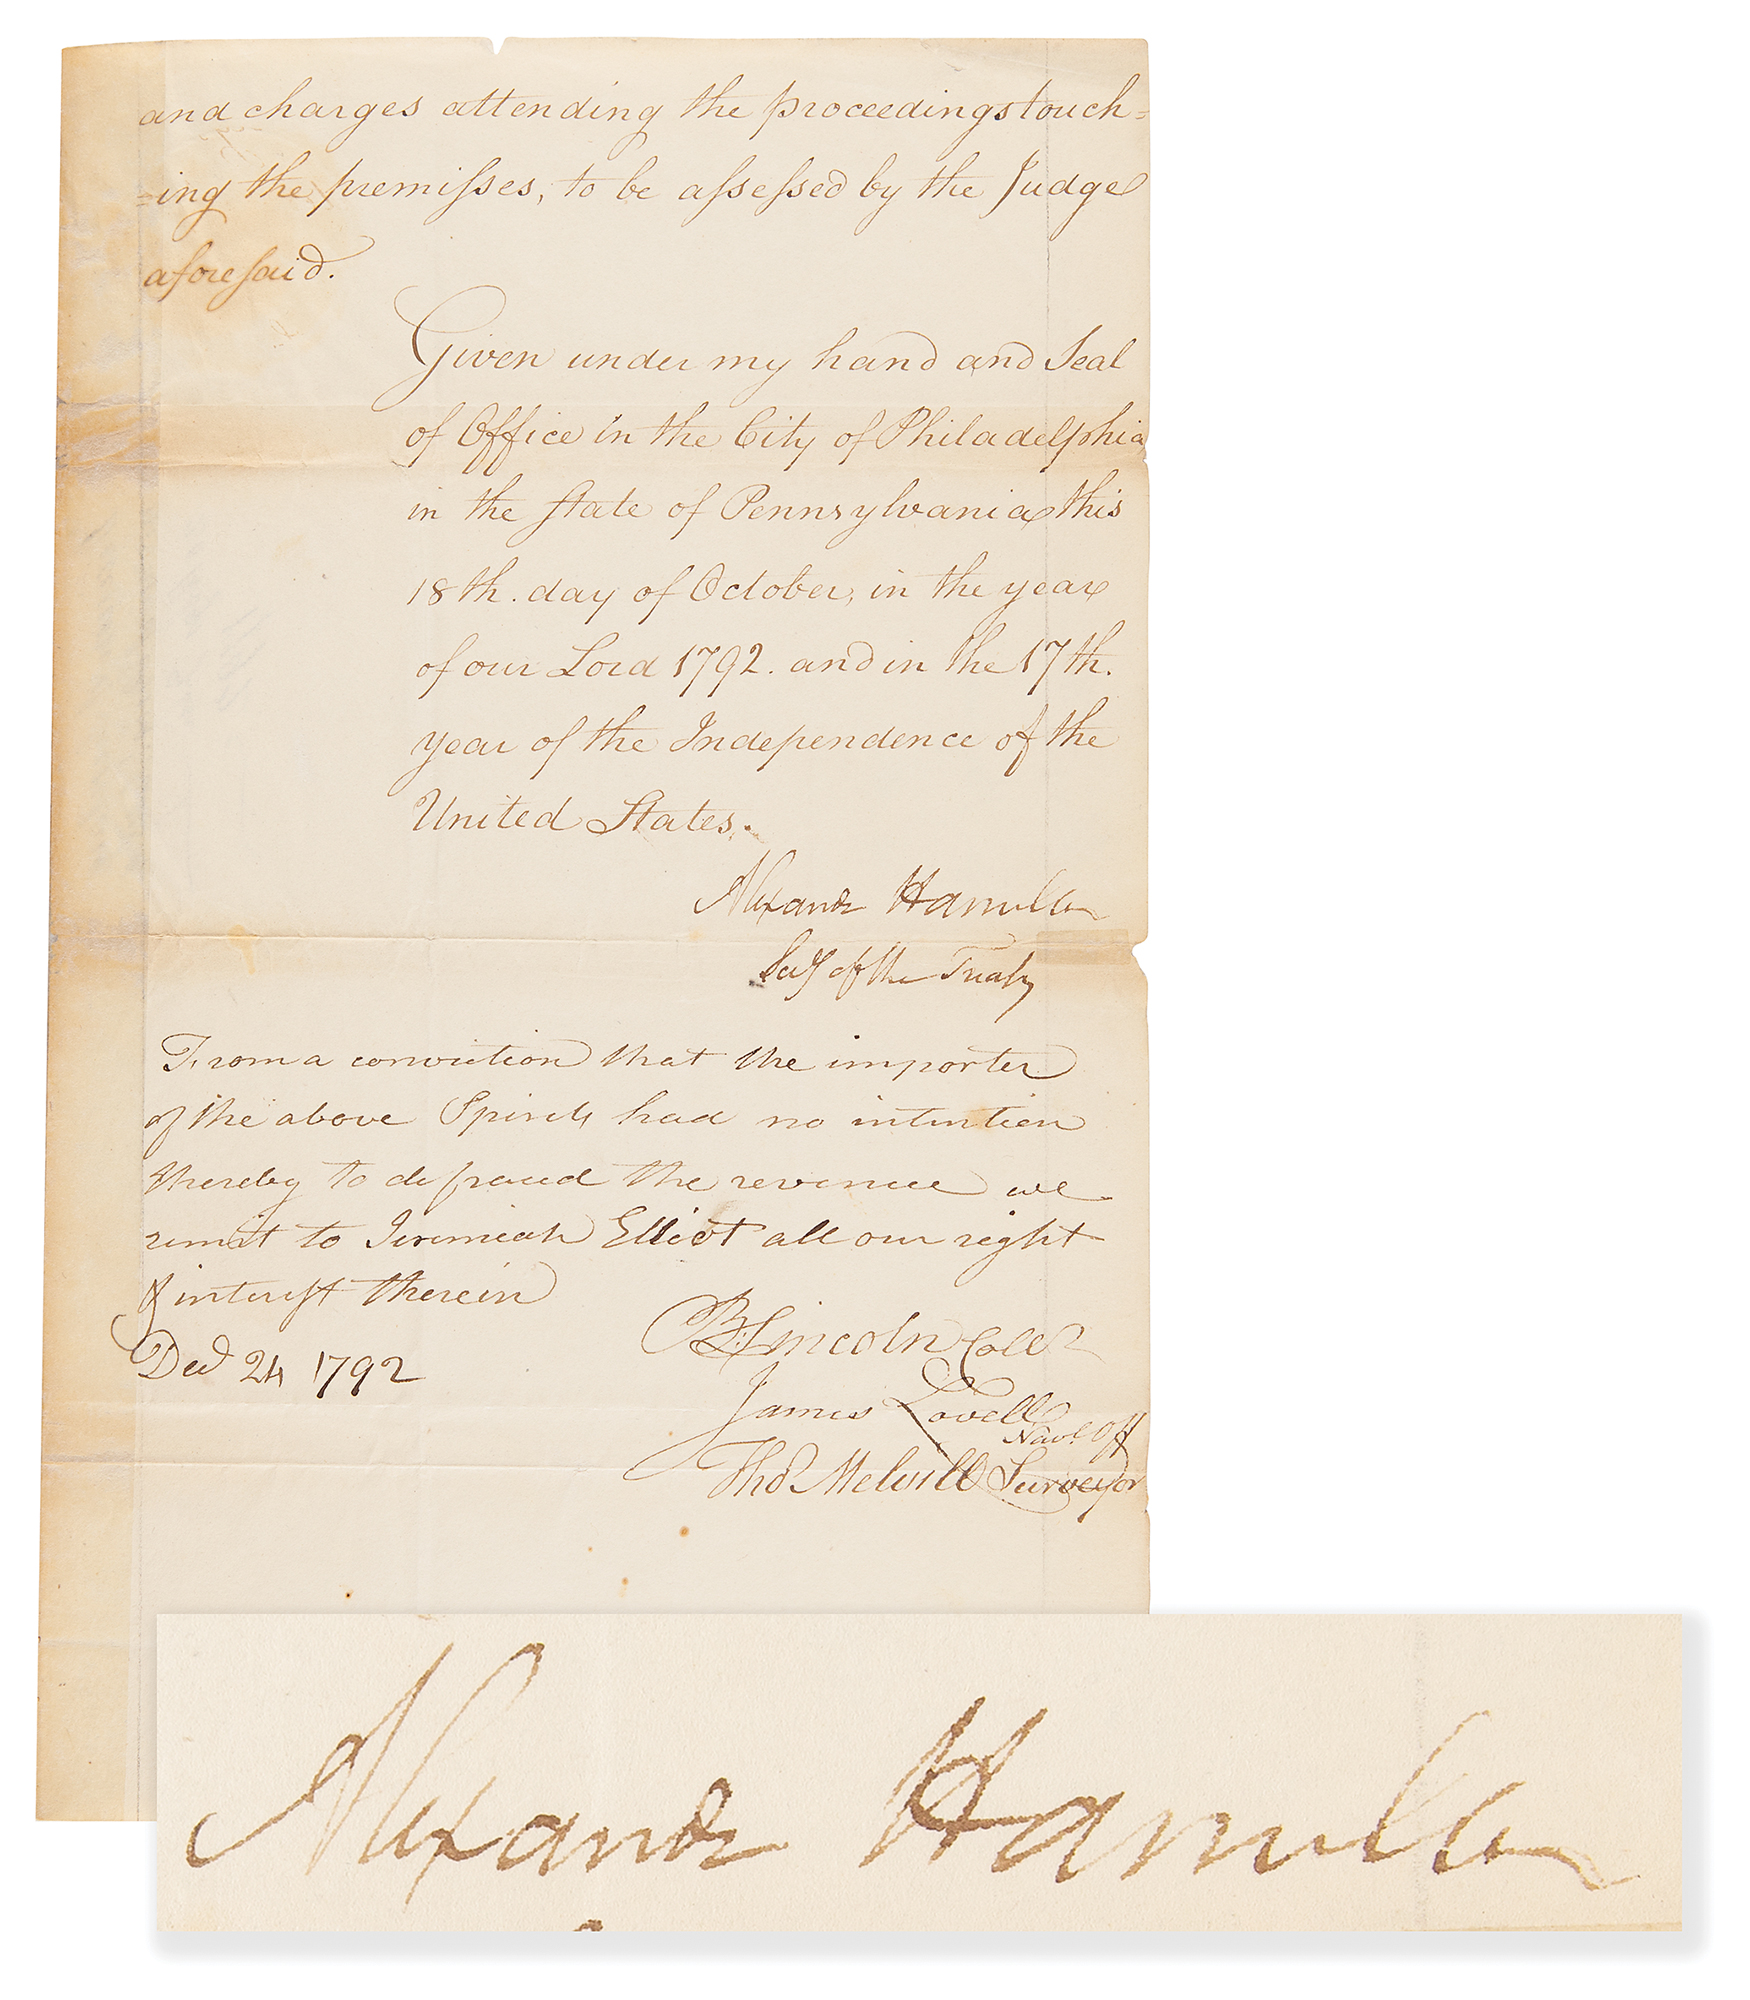 and charges attending the proceedings touch=
=ing the premiſses, to be aſseſsed by the Judge
aforeſaid.
Given under my hand and Seal
of Office in the City of Philadelphia
in the State of Pennsylvania this
18th. day of October, in the year
of our Lord 1792. and in the 17th.
year of the Independence of the
United States.
Alexandr Hamilton
Secy of the Treasy
From a conviction that the importer
of the above Spirits had no intention
thereby to defraud the revenue we
remit to Jeremiah Elliot all our right
& intereſt therein
Decr 24 1792
B: Lincoln Collr
James Lovell
Navl. Off
Thos Melvill Surveyor
Alexandr Hamilton